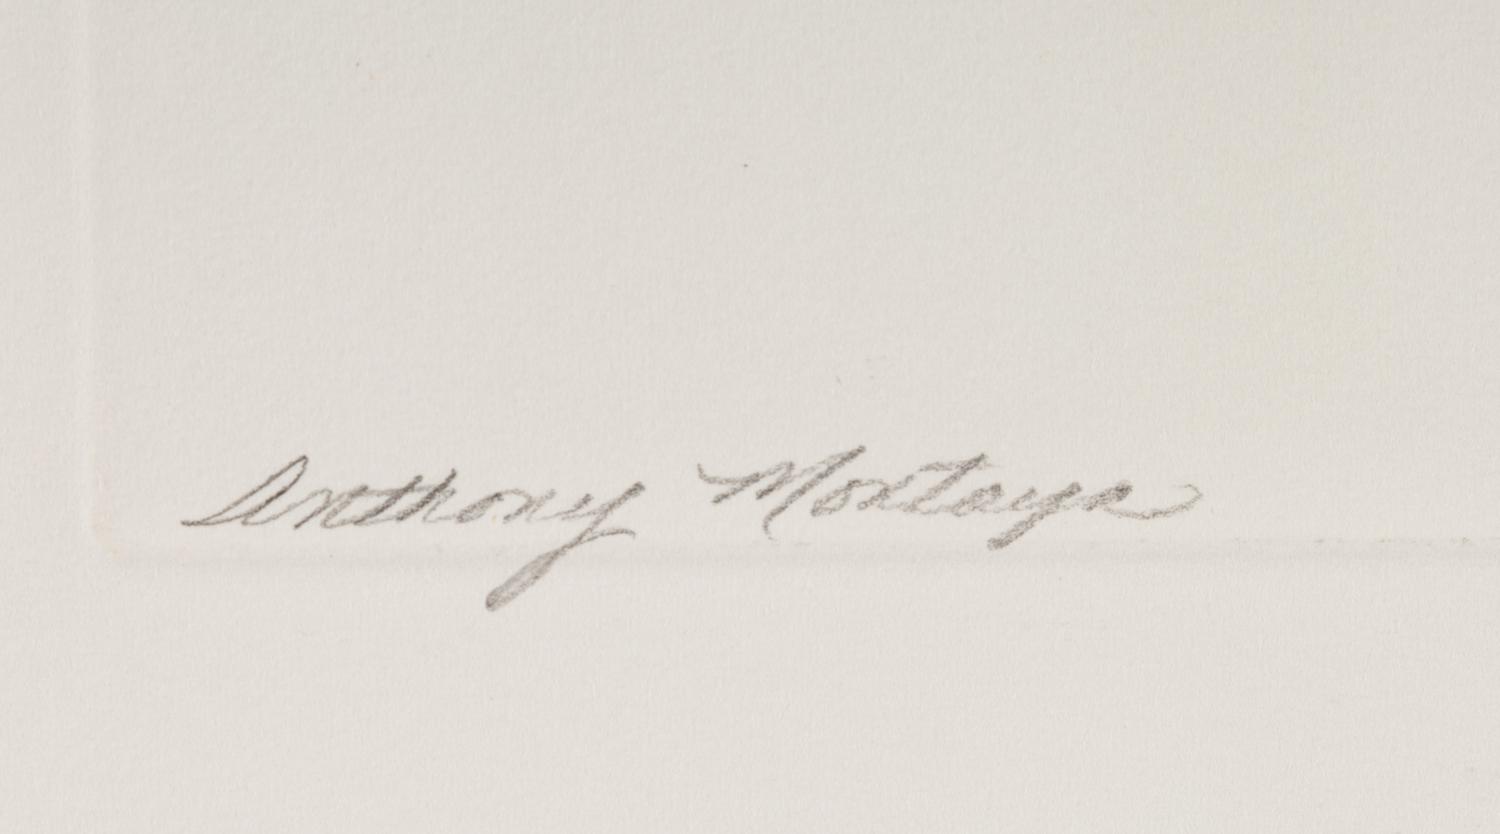 Anthony Montaya